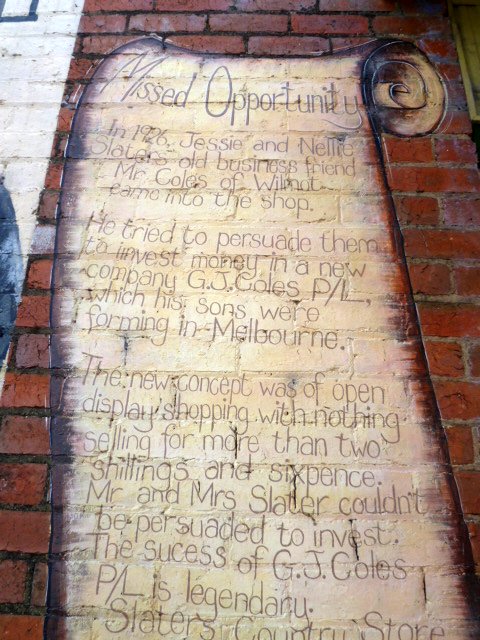 Missed Opportunity
In 1926, Jessie and Nellie
Slater's old business friend
Mr Coles of Wilmot
came into the shop.
He tried to persuade them
to invest money in a new
company G.J. Coles P/L,
which his sons were
forming in Melbourne.
The new concept was of open
display shopping with nothing
selling for more than two
shillings and sixpence.
Mr and Mrs Slater couldn't
be persuaded to invest.
The sucess of G.J. Coles
P/L is legendary.
Slater's Country Store